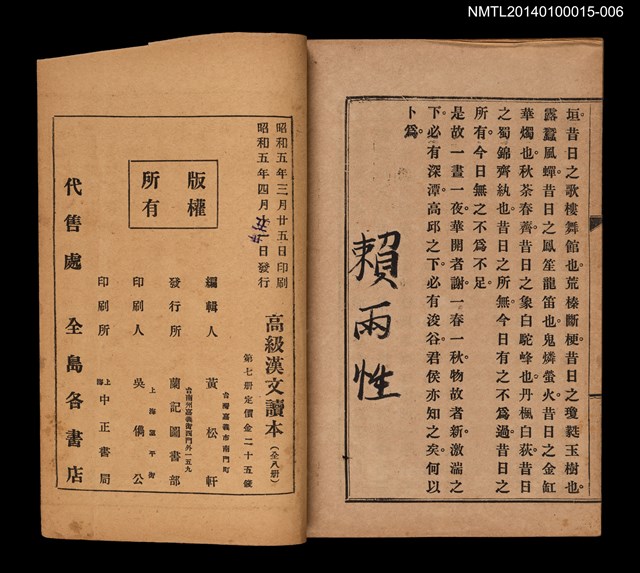 NMTL20140100015-006
垣。昔日之歌樓舞館也。荒榛斷梗。昔日之瓊蕤玉樹也。
露蠶風蟬。昔日之鳳笙龍笛也。鬼燐螢火。昔日之金缸
華燭也。秋荼春薺。昔日之象白駝峰也。丹楓白荻。昔日
之蜀錦齊紈也。昔日之所無。今日有之不爲過。昔日之
所有。今日無之不爲不足。
是故一晝一夜。華開者謝。一春一秋。物故者新。激湍之
下。必有深潭。高邱之下。必有浚谷。君侯亦知之矣。何以
卜爲。
賴雨性
昭和五年三月廿五日印刷
昭和五年四月 日發行
版權所有
高級漢文讀本(全八册)
第七册定價金二十五錢
台灣嘉義市南門町
編輯人 黃松軒
台南州嘉義街西門外一五九
發行所 蘭記圖書部
上海望平街
印刷人 吳倚公
印刷所 上海 中正書局
代售處 全島各書店